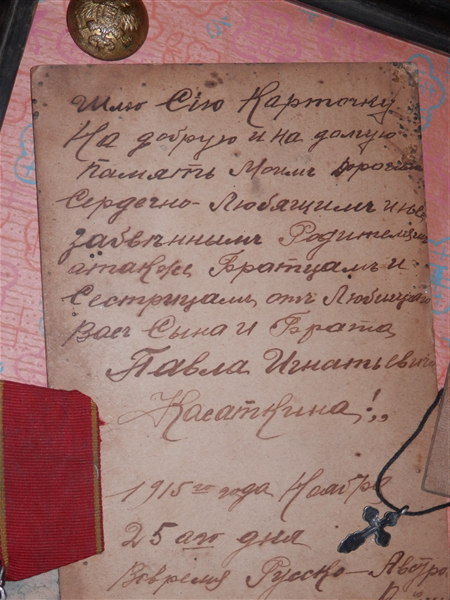 Шлю Сію Карточку
На добрую и на долгую
память Моимъ Дорогим
Сердечно-Любящимъ и не
забвѣннымъ Родителям
атакоже Братцамъ и
Сестрицамъ отъ Любящаго
Васъ Сына и Брата
Павла Игнатьевича
Касаткина!,,
1915го года Ноября
25аго дня
Вовремя Русско-Австро